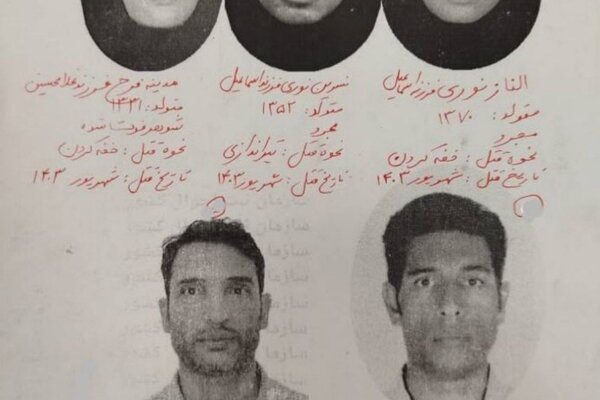 الناز نوری فرزند اسماعیل
متولد : ۱۳۷۰
مجرد
نحوه قتل : خفه کردن
تاریخ قتل : شهریور ۱۴۰۳
نسرین نوری فرزند اسماعیل
متولد : ۱۳۵۲
مجرد
نحوه قتل : تیراندازی
تاریخ قتل : شهریور ۱۴۰۳
مدینه فرحی فرزند غلامحسین
متولد : ۱۳۳۱
شوهر فوت شده
نحوه قتل : خفه کردن
تاریخ قتل : شهریور ۱۴۰۳